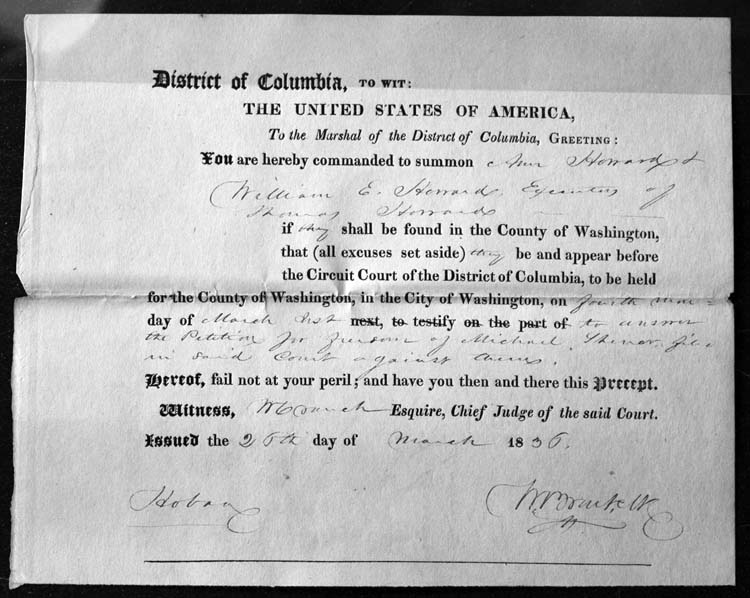 District of Columbia, TO WIT:
THE UNITED STATES OF AMERICA,
To the Marshal of the District of Columbia, GREETING:
You are hereby commanded to summon Ann Howard &
William E. Howard, Executors of
Thomas Howard
if they shall be found in the County of Washington,
that (all excuses set aside) they be and appear before
the Circuit Court of the District of Columbia, to be held
for the County of Washington, in the City of Washington, on fourth mon-
day of March inst next, to testify on the part of to answer
the Petition for freedom of Michael
in said Court against them.
Hereof, fail not at your peril; and have you then and there this Precept.
Witness, W Cranch Esquire, Chief Judge of the said Court.
Issued the 26th day of March 1836.
Hoban
W. Brent. Clk